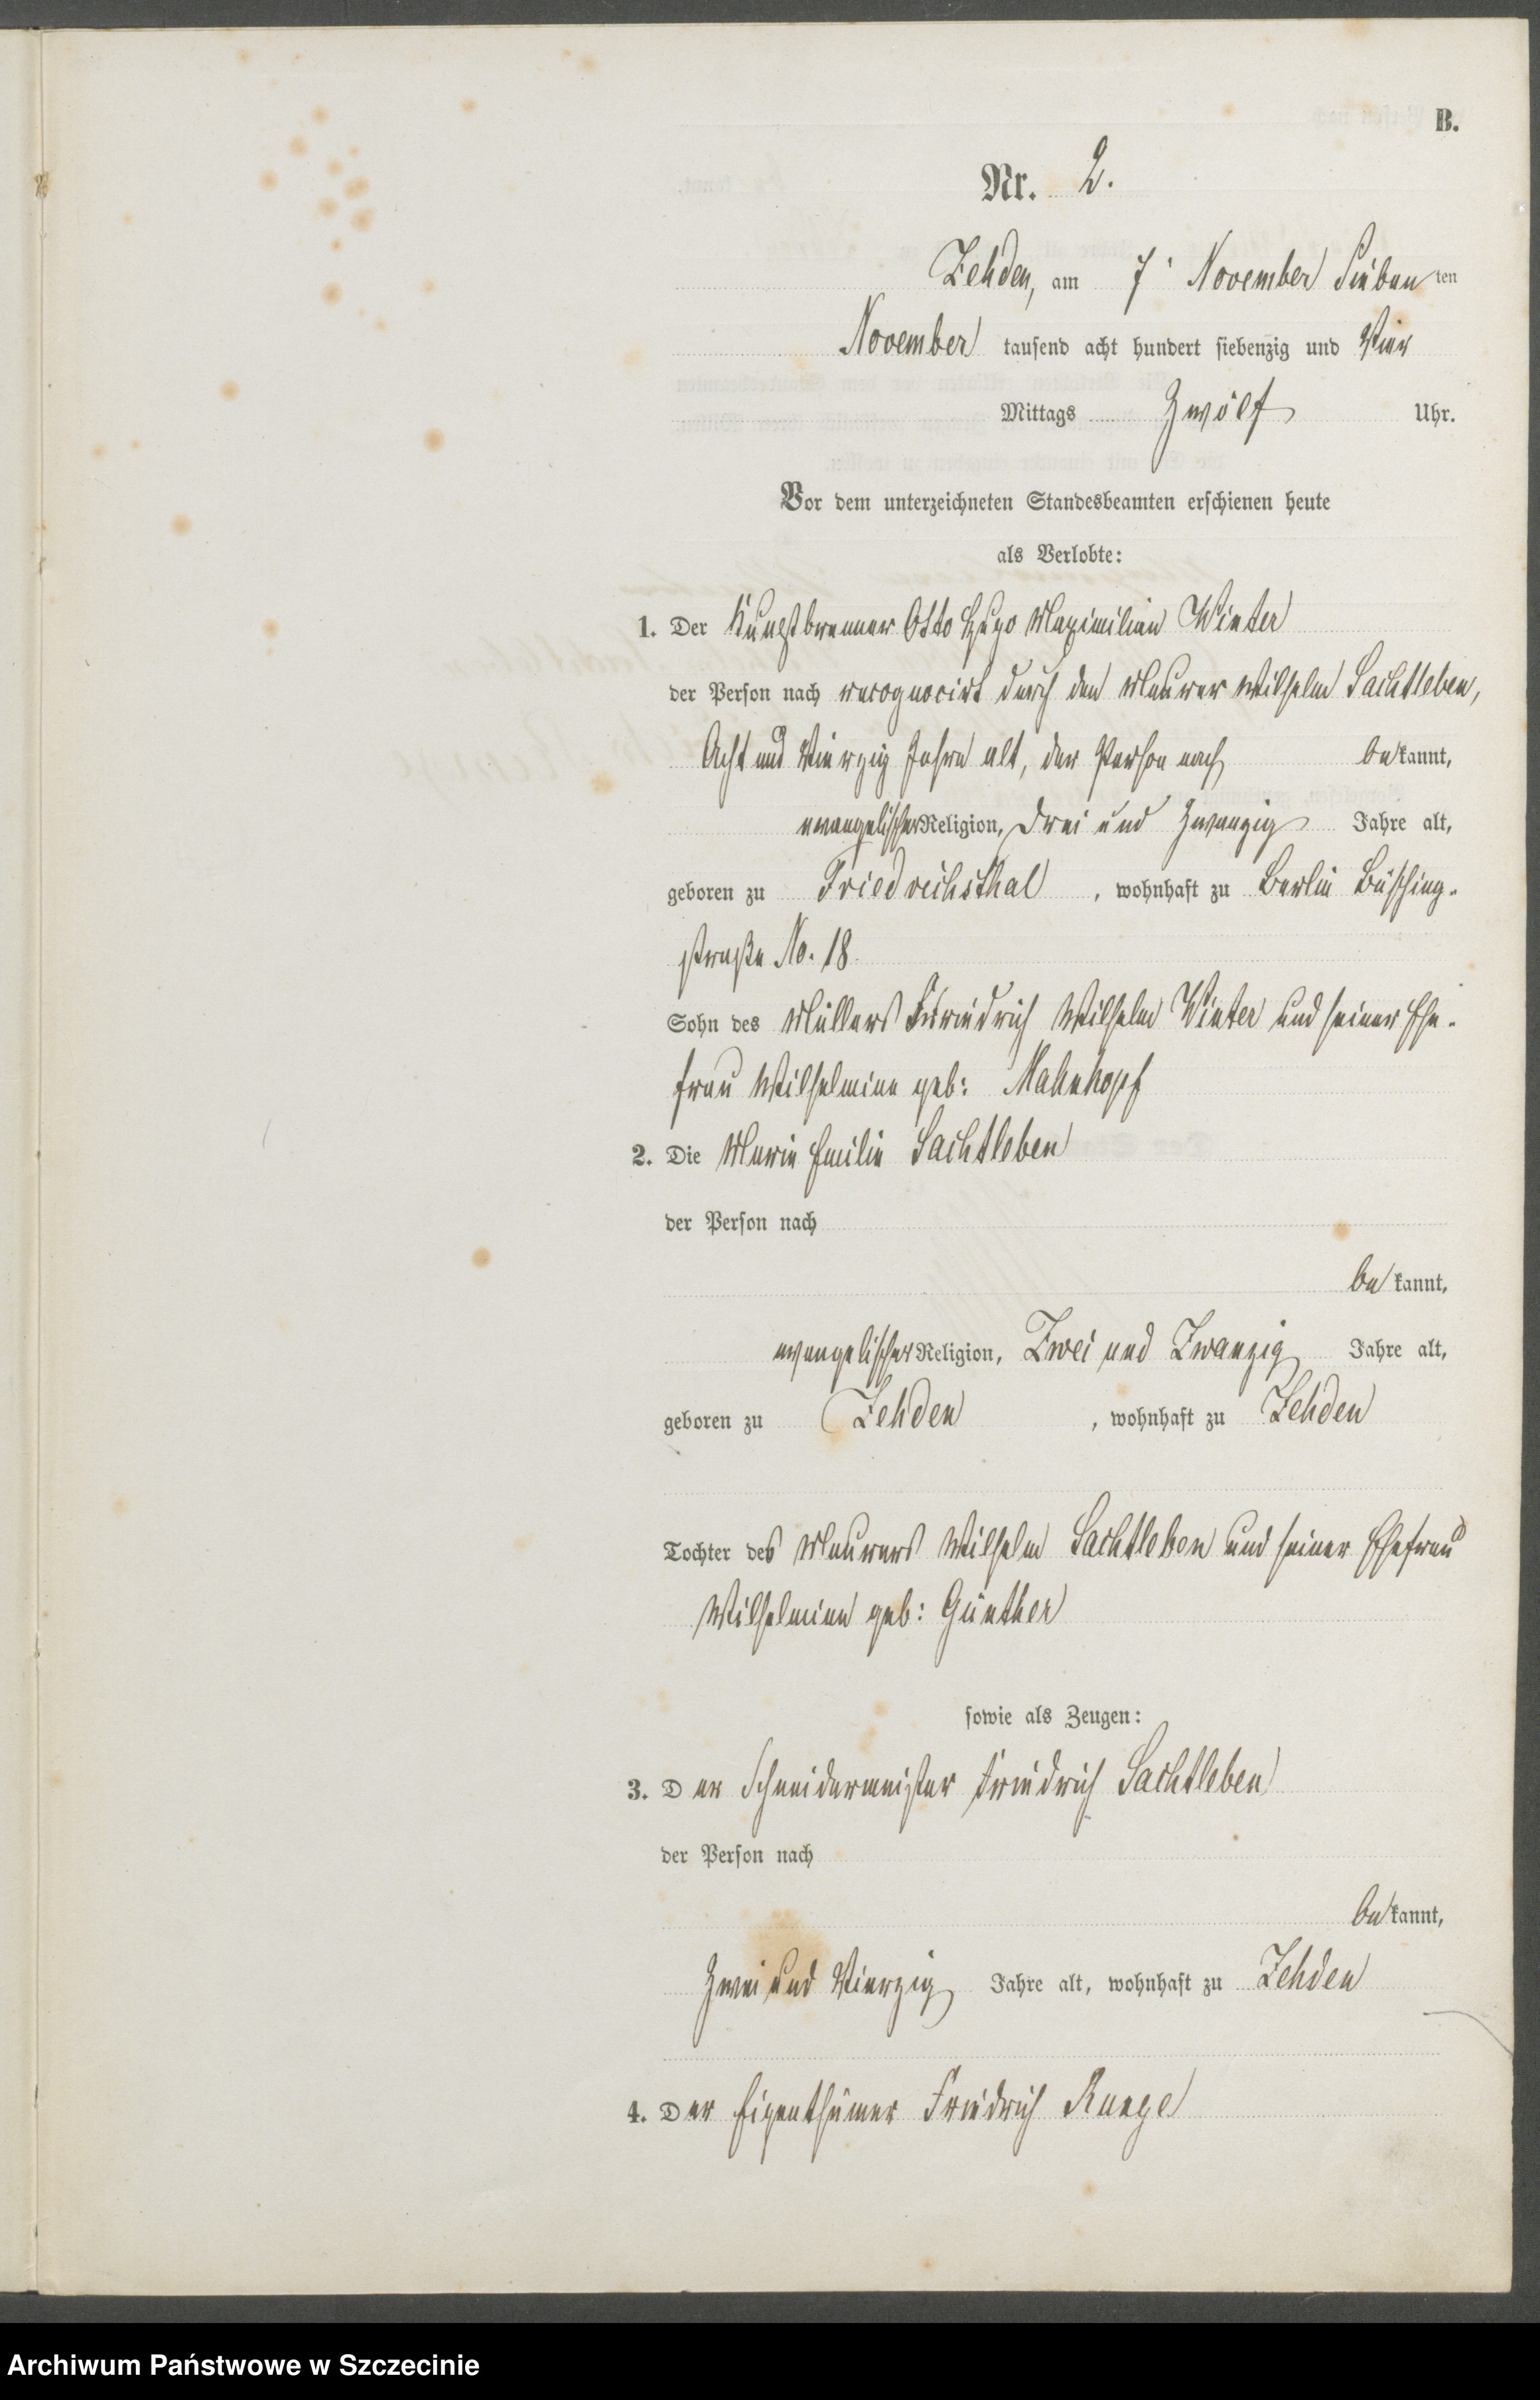 B.
Nr. 2.
Zehden, am 7. November Sieben ten
November tausend acht hundert siebenzig und Vier
Mittags Zwölf Uhr.
Vor dem unterzeichneten Standesbeamten erschienen heute
als Verlobte:
1. Der Kunstbrenner Otto Hugo Maximilian Winter
der Person nach recognocirt durch den Maurer Wilhelm Sachtleben,
Acht und Vierzig Jahre alt, der Person nach bekannt,
evangelischer Religion, Drei und Zwanzig Jahre alt,
geboren zu Friedrichsthal, wohnhaft zu Berlin Büsching-
straße No. 18.
Sohn des Müllers Friedrich Wilhelm Winter und seiner Ehe-
frau Wilhelmine geb: Mahnkopf
2. Die Marie Emilie Sachtleben
der Person nach
bekannt,
evangelischer Religion, Zwei und Zwanzig Jahre alt,
geboren zu Zehden, wohnhaft zu Zehden
Tochter des Maurers Wilhelm Sachtleben und seiner Ehefrau
Wilhelmine geb: Günther
sowie als Zeugen:
3. Der Schneidermeister Friedrich Sachtleben
der Person nach
bekannt,
Zwei und Vierzig Jahre alt, wohnhaft zu Zehden
4. Der Eigenthümer Friedrich Runge
Archiwum Państwowe w Szczecinie